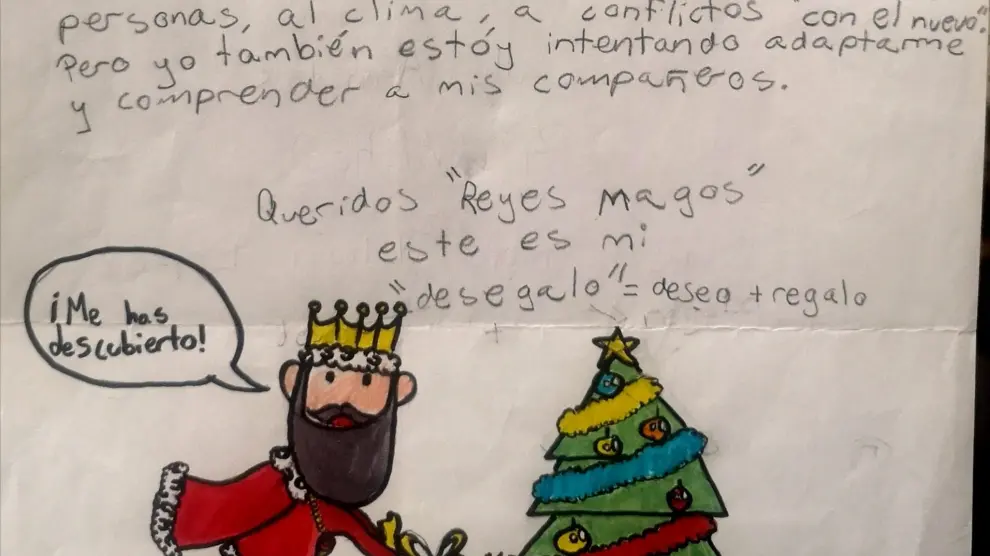 personas, al clima, a conflictos "con el nuevo".
Pero yo también estóy intentando adaptarme
y comprender a mis compañeros.
Queridos "Reyes magos"
este es mi
"desegalo" = deseo + regalo
¡Me has
descubierto!